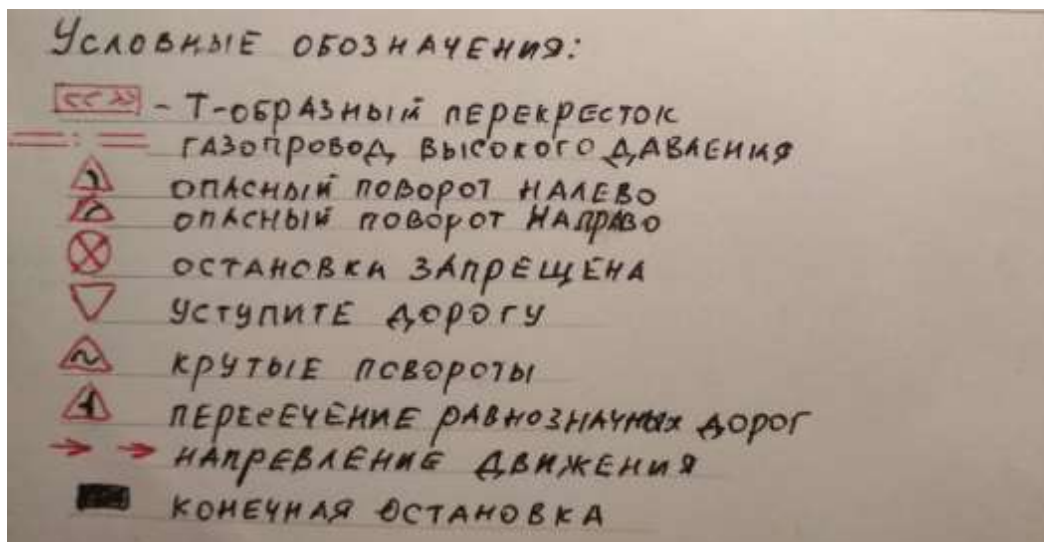 Условные обозначения:
<< >> - Т-образный перекресток
газопровод высокого давления
опасный поворот налево
опасный поворот направо
остановки запрещена
уступите дорогу
крутые повороты
пересечение равнозначных дорог
напревление движения
конечная остановка